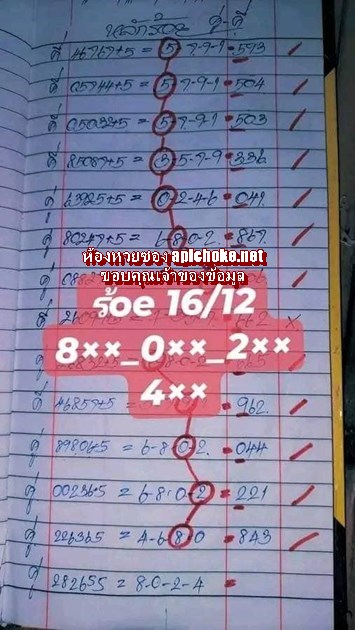 หลักร้อย คู่-คี่
คี่ 46767+5 = 5-7-9-1 = 593 /
คี่ 05744+5 = 5-7-9-1 = 504 /
คี่ 05032+5 = 5-7-9-1 = 503 /
คี่ 85087+5 = 3-5-7-9 = 336 /
คู่ 63925+5 = 0-2-4-6 = 041 /
คู่ 80247+5 = 6-8-0-2 = 867 /
ห้องหวยซอง apichoke.net
ขอบคุณเจ้าของข้อมูล
ร้oe 16/12
8××_0××_2××
4××
= 962 /
คู่ 89806+5 = 6-8-0-2 = 044 /
คู่ 00236+5 = 6-8-0-2 = 221 /
คู่ 22636+5 = 4-6-8-0 = 843 /
คู่ 28265+5 = 8-0-2-4 =